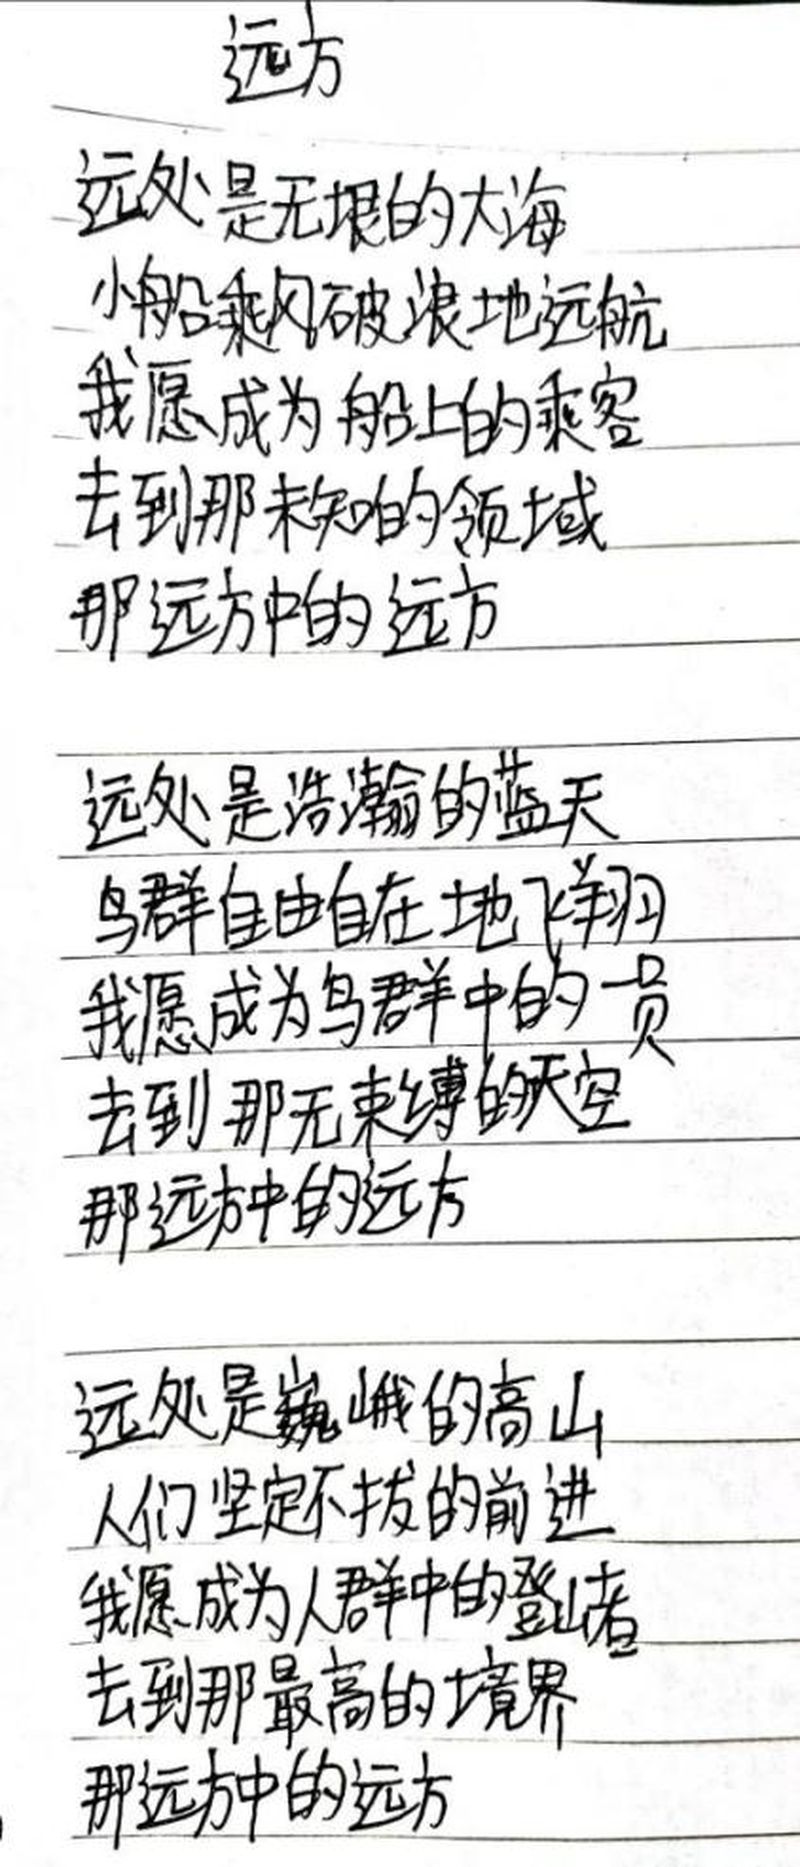 远方
远处是无垠的大海
小船乘风破浪地远航
我愿成为船上的乘客
去到那未知的领域
那远方中的远方
远处是浩瀚的蓝天
鸟群自由自在地飞翔
我愿成为鸟群中的一员
去到那无束缚的天空
那远方中的远方
远处是巍峨的高山
人们坚定不拔的前进
我愿成为人群中的登山者
去到那最高的境界
那远方中的远方